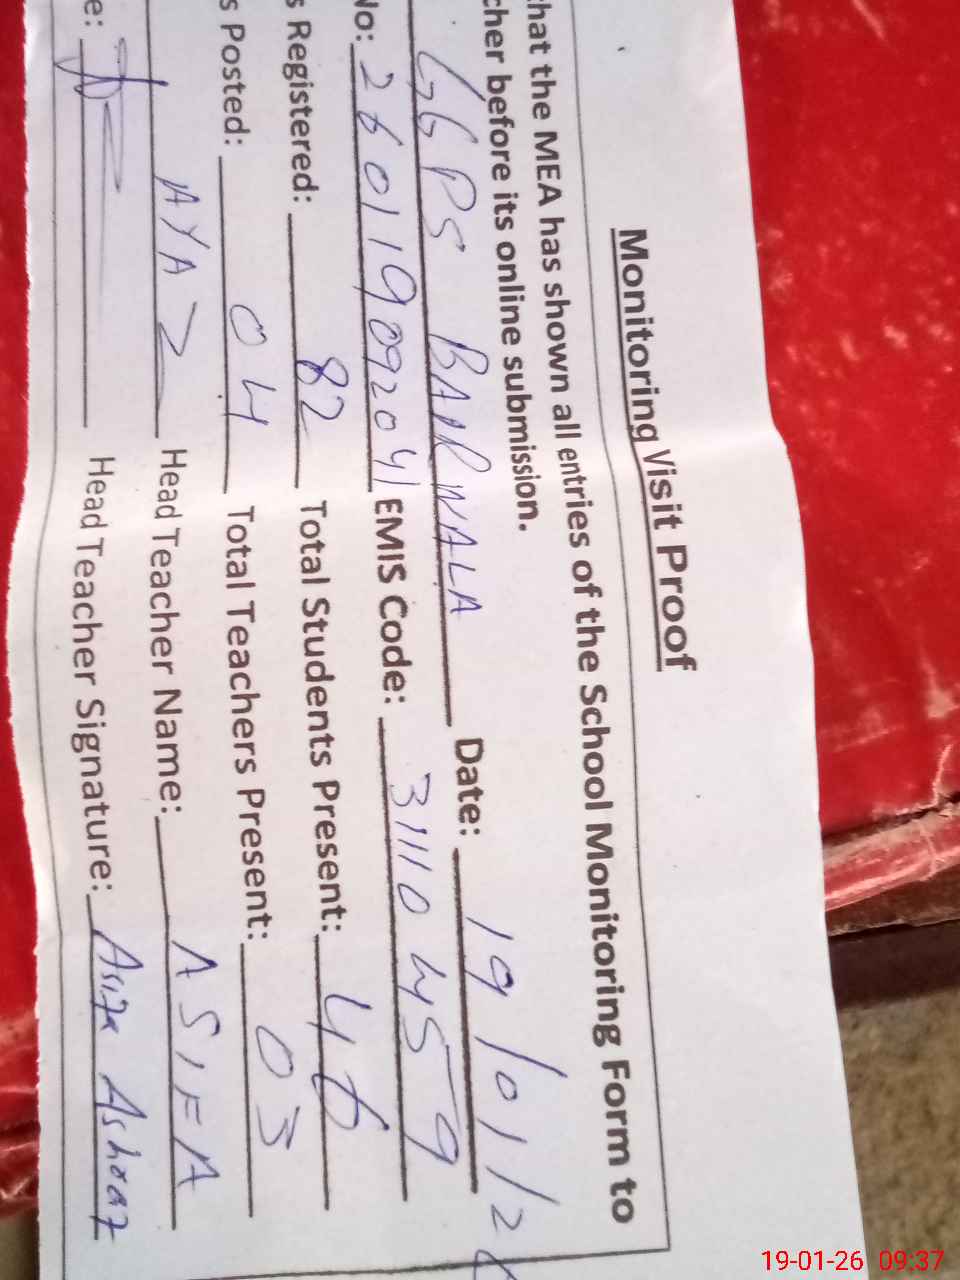 Monitoring Visit Proof
that the MEA has shown all entries of the School Monitoring Form to
cher before its online submission.
GGPS BAARWALA Date: 19/01/2
No: 26011909204 EMIS Code: 31110459
s Registered: 82 Total Students Present: 46
s Posted: 04 Total Teachers Present: 03
AYAZ Head Teacher Name: ASIFA
e: Head Teacher Signature: Asifa Ashraf
19-01-26 09:37